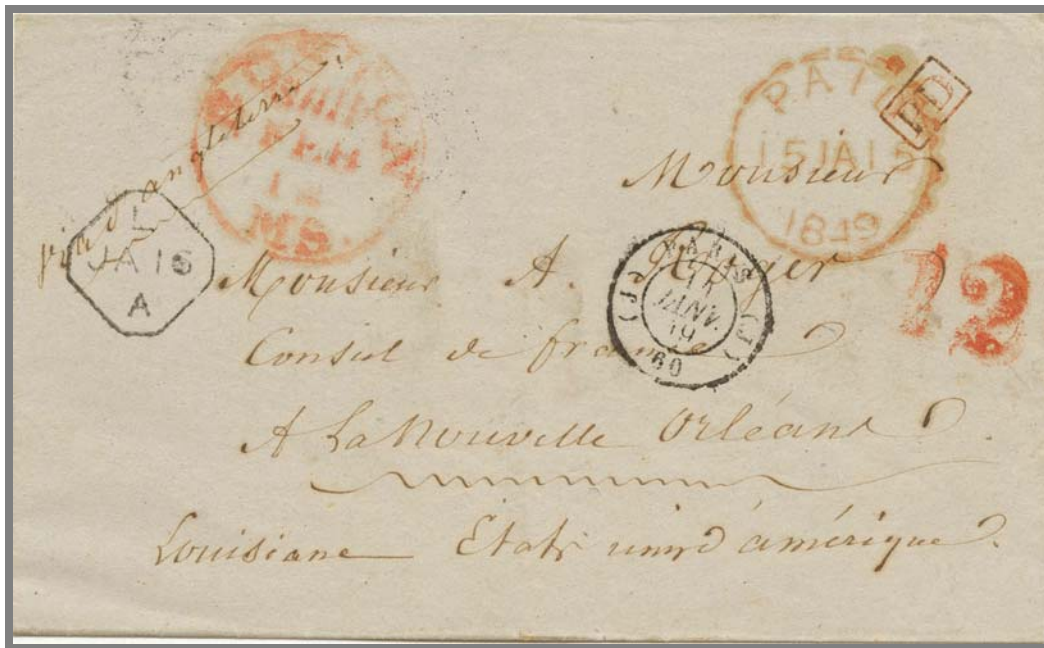 via d'angleterre
FEB
MS.
PAID
15 JA 15
1849
PD
L
JA 15
A
Monsieur
Monsieur A.
PARIS
JANV.
(J) (J)
60
12
Consul de france
A La Nouvelle Orléans
Louisiane Etats unis d'amérique.